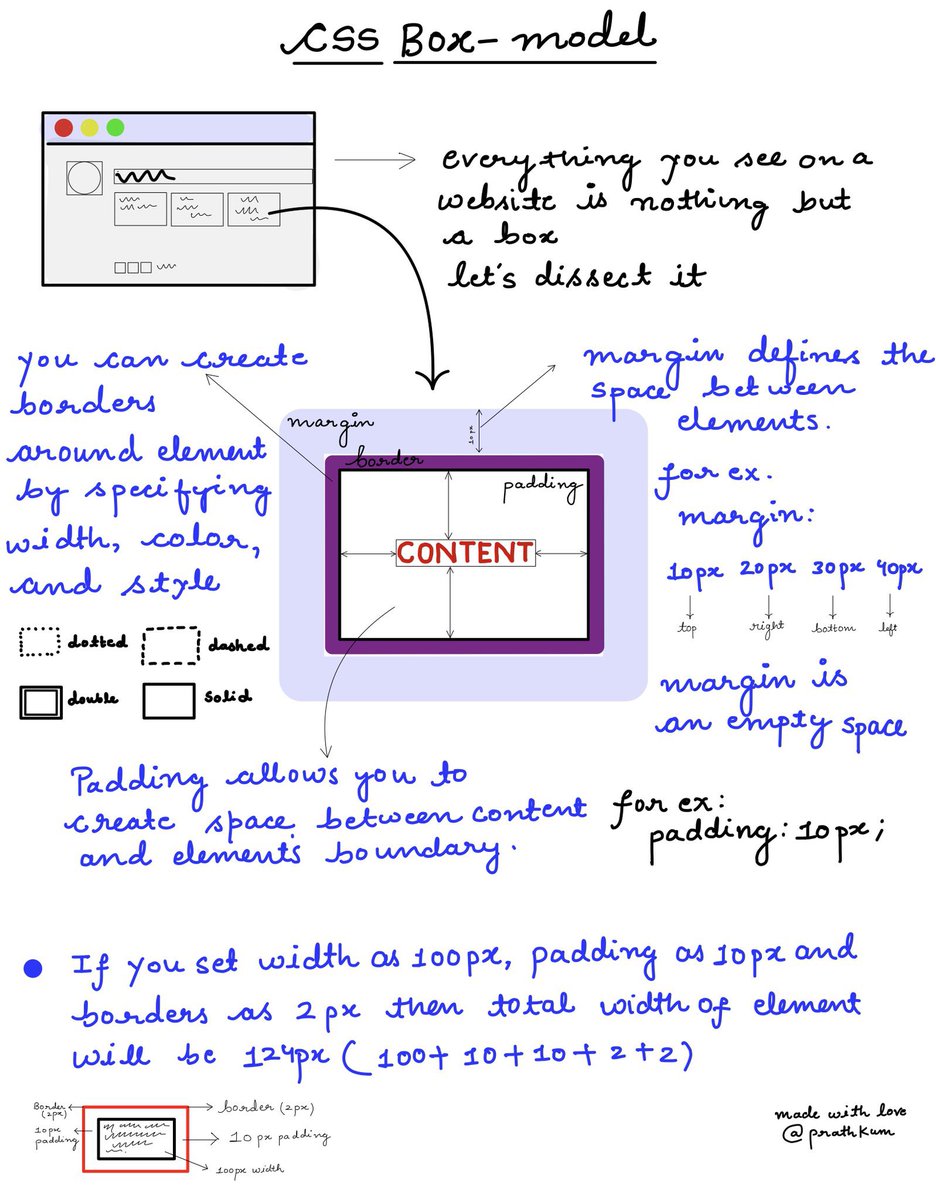 CSS Box-model
everything you see on a
website is nothing but
a box
let's dissect it
you can create
borders
around element
by specifying
width, color,
and style
dotted
dashed
double
solid
margin
10px
border
padding
CONTENT
margin defines the
space between
elements.
for ex.
margin:
10px 20px 30px 40px
top right bottom left
margin is
an empty space
Padding allows you to
create space between content
and element's boundary.
for ex:
padding: 10px;
If you set width as 100px, padding as 10px and
borders as 2px then total width of element
will be 124px (100+10+10+2+2)
Border
(2px)
10px
padding
border (2px)
10px padding
100px width
made with love
@prathkum